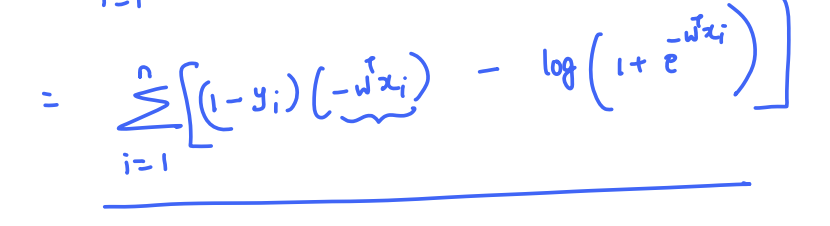 = \sum_{i=1}^{n} [ (1 - y_i) (-w^T x_i) - log ( 1 + e^{-w^T x_i} ) ]